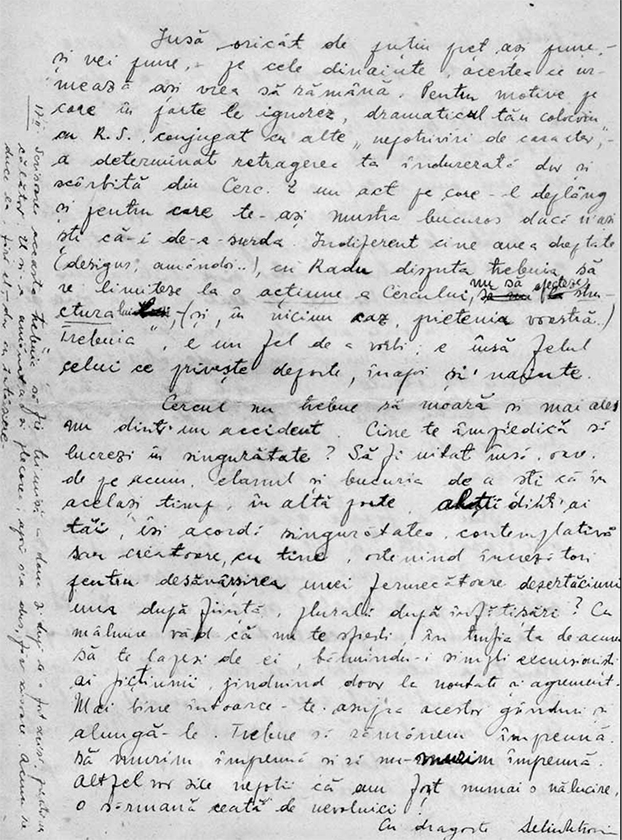 Însă oricât de puțin preț ași pune,
și vei pune, pe cele dinainte, acestea ce ur-
mează ași vrea să rămână. Pentru motive pe
care în parte le ignorez, dramaticul tău colocviu
cu R.S., conjugat cu alte "nepotriviri de caracter",
a determinat retragerea ta îndurerată dar și
scârbită din Cerc. E un act pe care-l deplâng
și pentru care te-ași mustra bucuros dacă n'ași
ști că-i de-a-surda. Indiferent cine avea dreptate
(desigur, amândoi..!), cu Radu disputa trebuia să
se limiteze la o acțiune a Cercului, nu să afecteze stru-
ctura lui (și, în niciun caz, prietenia voastră..)
Trebuia, e un fel de a vorbi; e însă felul
celui ce privește departe, înapoi și nainte.
Cercul nu trebue să moară și mai ales
nu dintr'un accident. Cine te împiedică să
lucrezi în singurătate? Să fi uitat însă, oare,
de pe acum, elanul și bucuria de a ști că în
același timp, în altă parte, alți dintr'ai
tăi, își acordă singurătatea, contemplativă
sau creatoare, cu tine, ostenind încrezători
pentru desăvârșirea unei fermecătoare deșertăciuni
una după ființă, plurală după înfățișări? Cu
mâhnire văd că nu te sfiești în trufia ta de acum
să te lapezi de ei, bănuindu-i simpli excursioniști
ai ficțiunii, jinduind doar la noutate și agrement.
Mai bine întoarce-te asupra acestor gânduri și
alungă-le. Trebue să rămânem împreună.
Să murim împreună și să nu murim împreună.
Altfel vor zice nepoții că am fost numai o nălucire,
o sărmană ceată de nevolnici!
Cu dragoste
Scrisoarea aceasta trebuia să fie trimisă